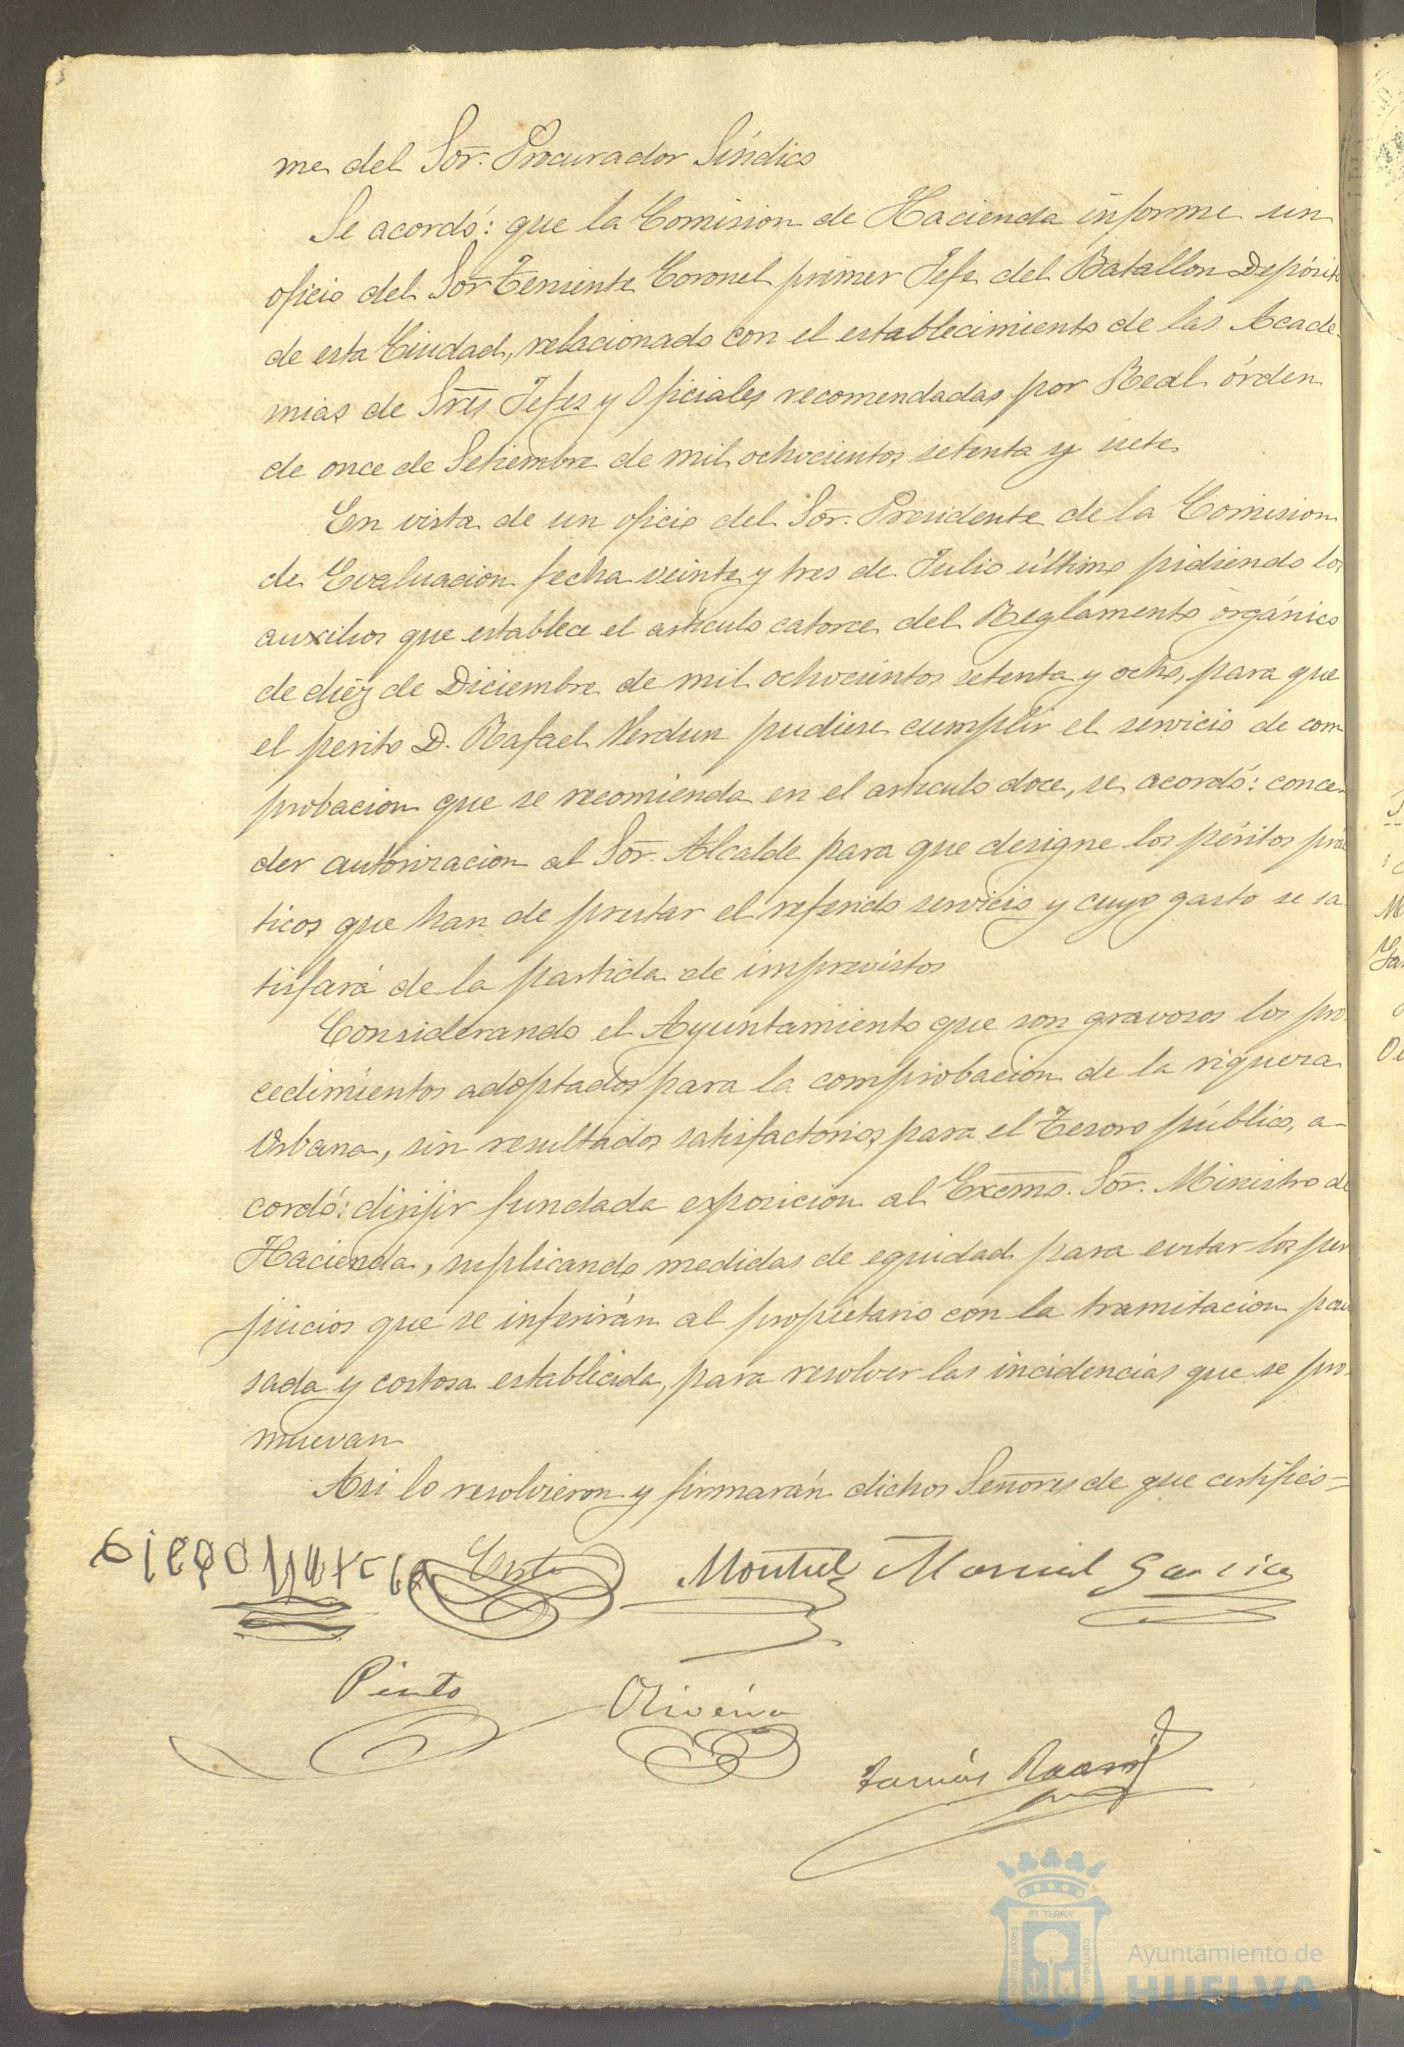 me del Sor. Procurador Síndico
Se acordó: que la Comision de Hacienda informe un
oficio del Sor Teniente Coronel primer Jefe del Batallon Depósito
de esta Ciudad, relacionado con el establecimiento de las Acade-
mias de Sres. Jefes y Oficiales recomendadas por Real órden
de once de Setiembre de mil ochocientos setenta y siete
En vista de un oficio del Sor. Presidente de la Comision
de Evaluacion fecha veinte y tres de Julio último pidiendo los
auxilios que establece el artículo catorce del Reglamento orgánico
de diéz de Diciembre de mil ochocientos setenta y ocho, para que
el perito D. Rafael Verdun pudiese cumplir el servicio de com
probacion que se recomienda en el artículo doce, se acordó: conce-
der autorizacion al Sor. Alcalde para que designe los péritos prác
ticos que han de prestar el referido servicio y cuyo gasto se sa
tisfará de la partida de imprevistos
Considerando el Ayuntamiento que son gravosos los pro
cedimientos adoptados para la comprobacion de la riqueza
Urbana, sin resultados satisfactorios para el Tesoro público, a-
cordó: dirijir fundada exposicion al Excmo. Sor. Ministro de
Hacienda, suplicando medidas de equidad para evitar los per
juicios que se inferirán al propietario con la tramitacion pau
sada y costosa establecida, para resolver las incidencias que se pro-
muevan
Asi lo resolvieron y firmarán dichos Señores de que certifico=
Montiel Manuel Garcia
Pinto Oliveira
Tomás
Ayuntamiento de
HUELVA